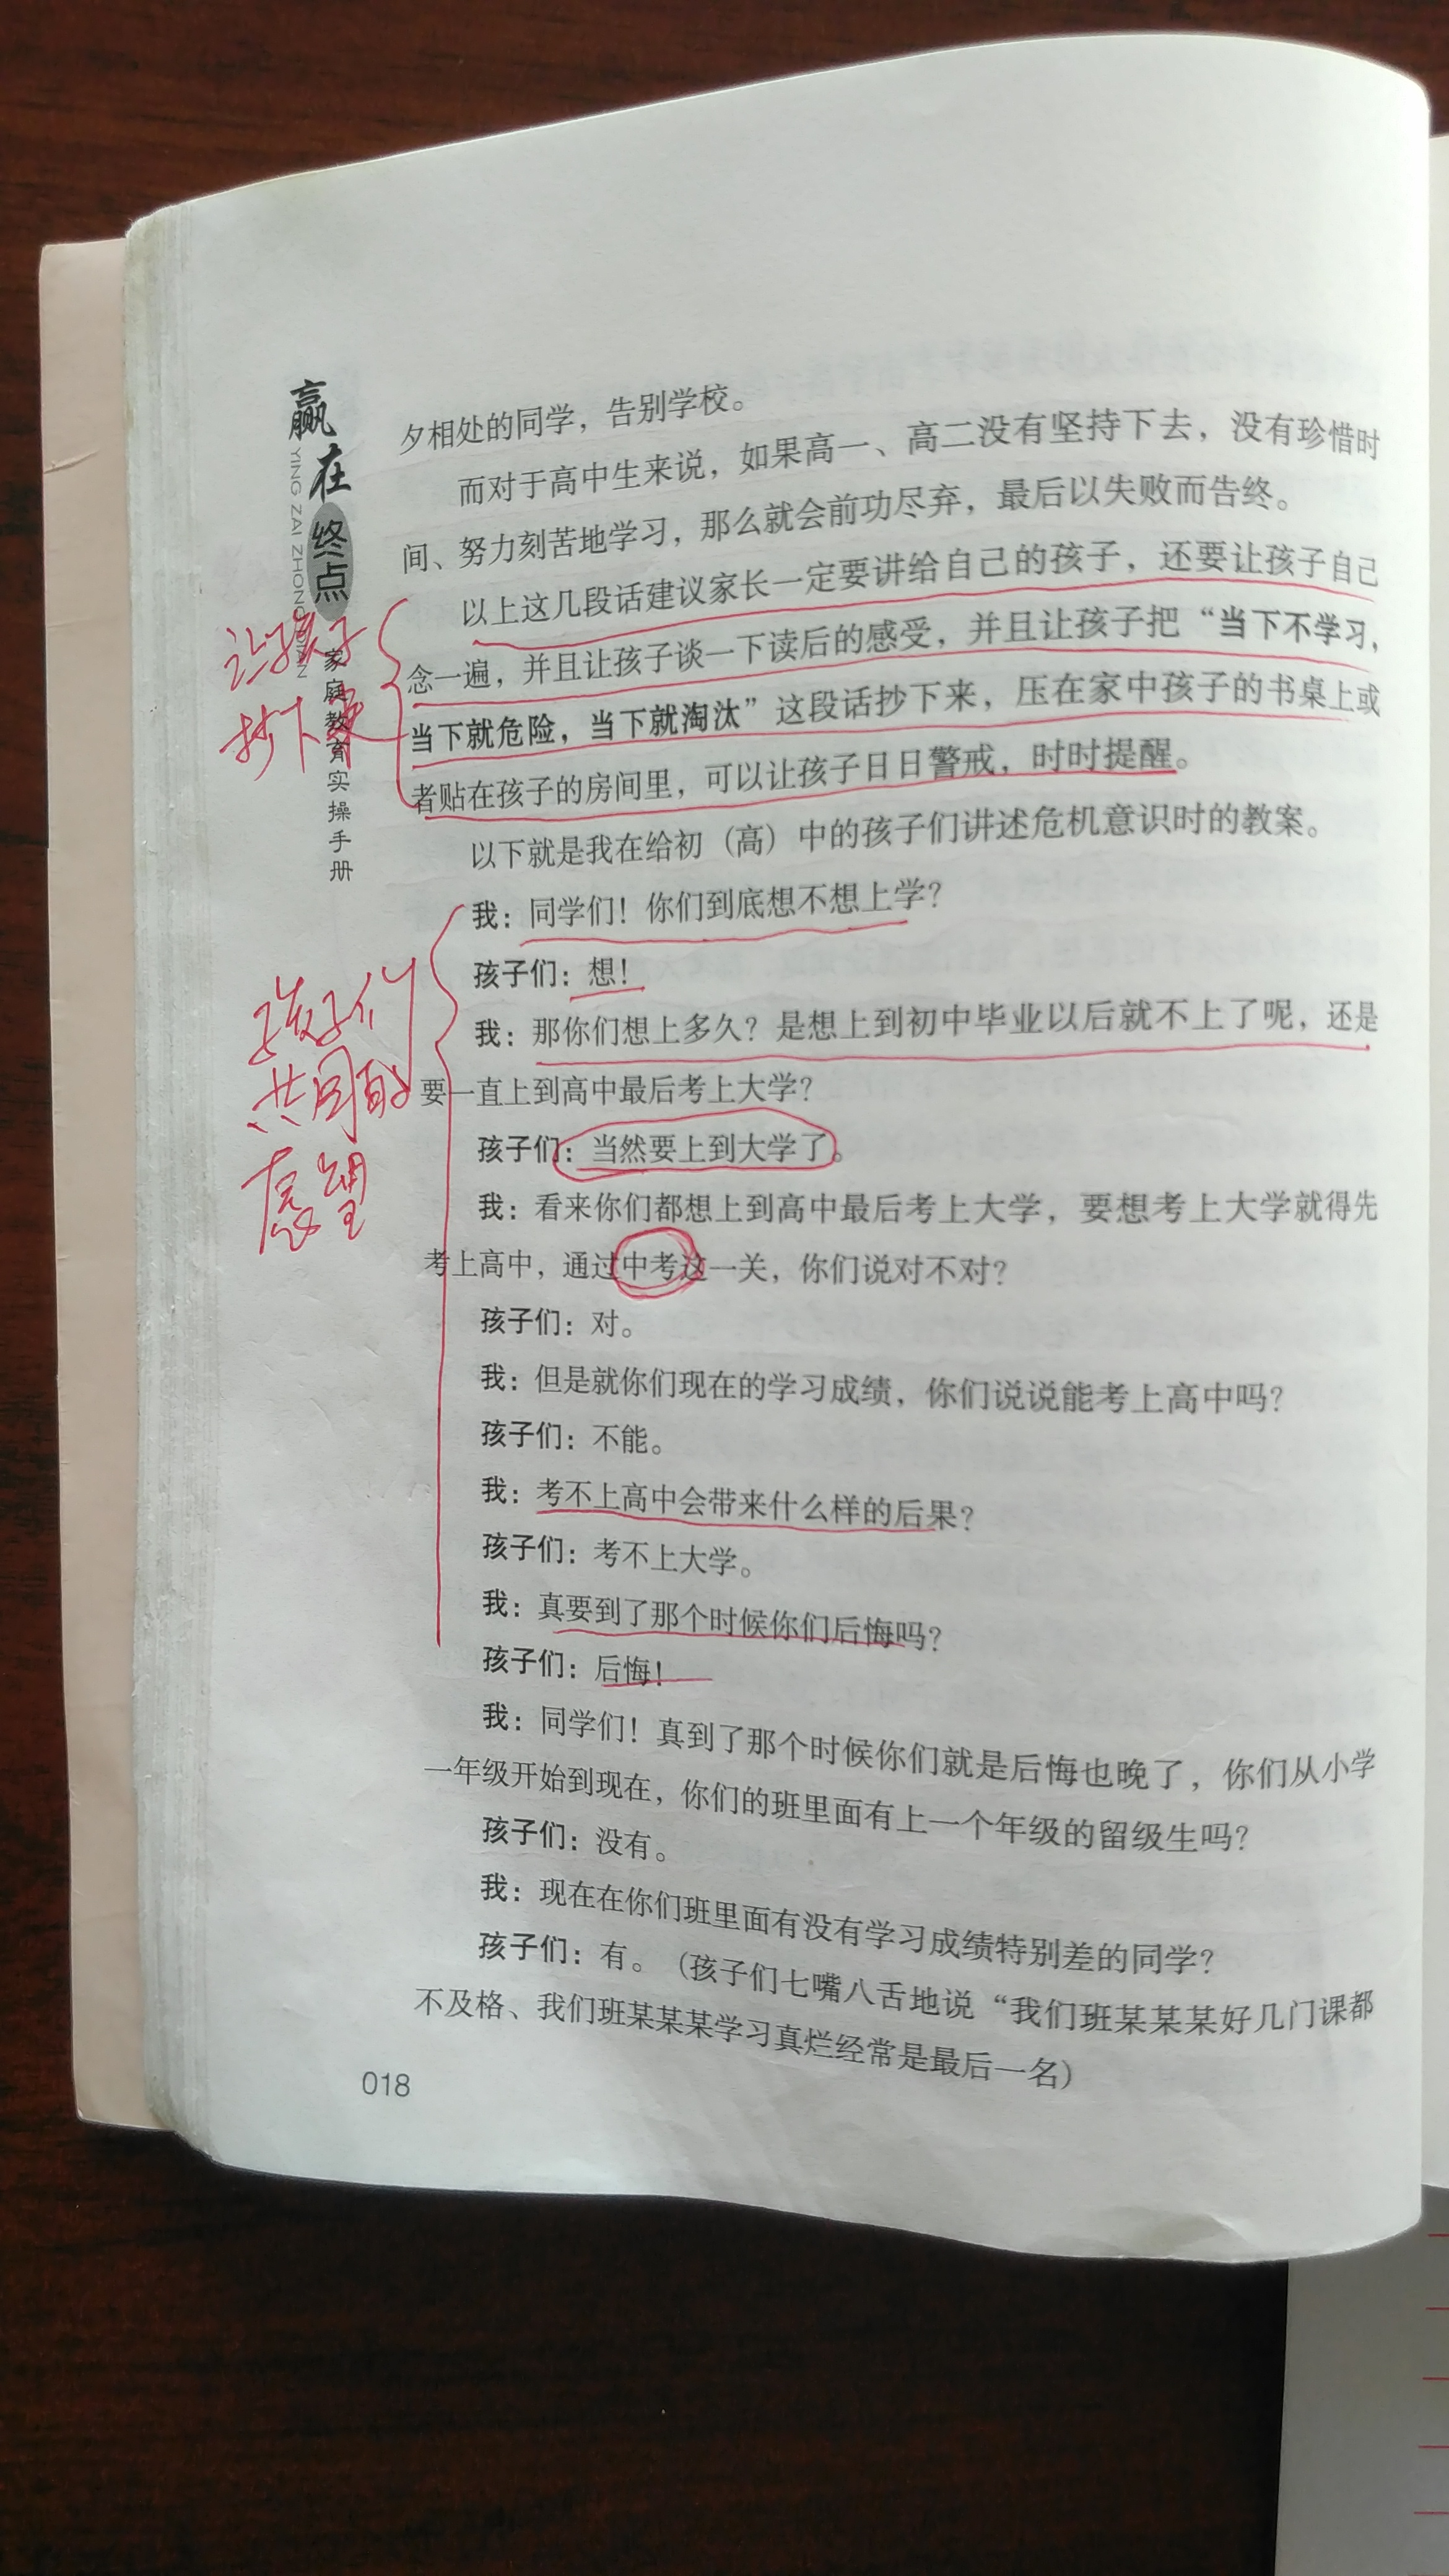 赢在终点
YING ZAI ZHONG DIAN
家庭教育实操手册
夕相处的同学，告别学校。
而对于高中生来说，如果高一、高二没有坚持下去，没有珍惜时
间、努力刻苦地学习，那么就会前功尽弃，最后以失败而告终。
以上这几段话建议家长一定要讲给自己的孩子，还要让孩子自己
念一遍，并且让孩子谈一下读后的感受，并且让孩子把“当下不学习，
当下就危险，当下就淘汰”这段话抄下来，压在家中孩子的书桌上或
者贴在孩子的房间里，可以让孩子日日警戒，时时提醒。
让孩子
抄下来
以下就是我在给初（高）中的孩子们讲述危机意识时的教案。
我：同学们！你们到底想不想上学？
孩子们：想！
我：那你们想上多久？是想上到初中毕业以后就不上了呢，还是
要一直上到高中最后考上大学？
孩子们：当然要上到大学了。
孩子们
共同的
愿望
我：看来你们都想上到高中最后考上大学，要想考上大学就得先
考上高中，通过中考这一关，你们说对不对？
孩子们：对。
我：但是就你们现在的学习成绩，你们说说能考上高中吗？
孩子们：不能。
我：考不上高中会带来什么样的后果？
孩子们：考不上大学。
我：真要到了那个时候你们后悔吗？
孩子们：后悔！
我：同学们！真到了那个时候你们就是后悔也晚了，你们从小学
一年级开始到现在，你们的班里面有上一个年级的留级生吗？
孩子们：没有。
我：现在在你们班里面有没有学习成绩特别差的同学？
孩子们：有。（孩子们七嘴八舌地说“我们班某某某好几门课都
不及格、我们班某某某学习真烂经常是最后一名）
018